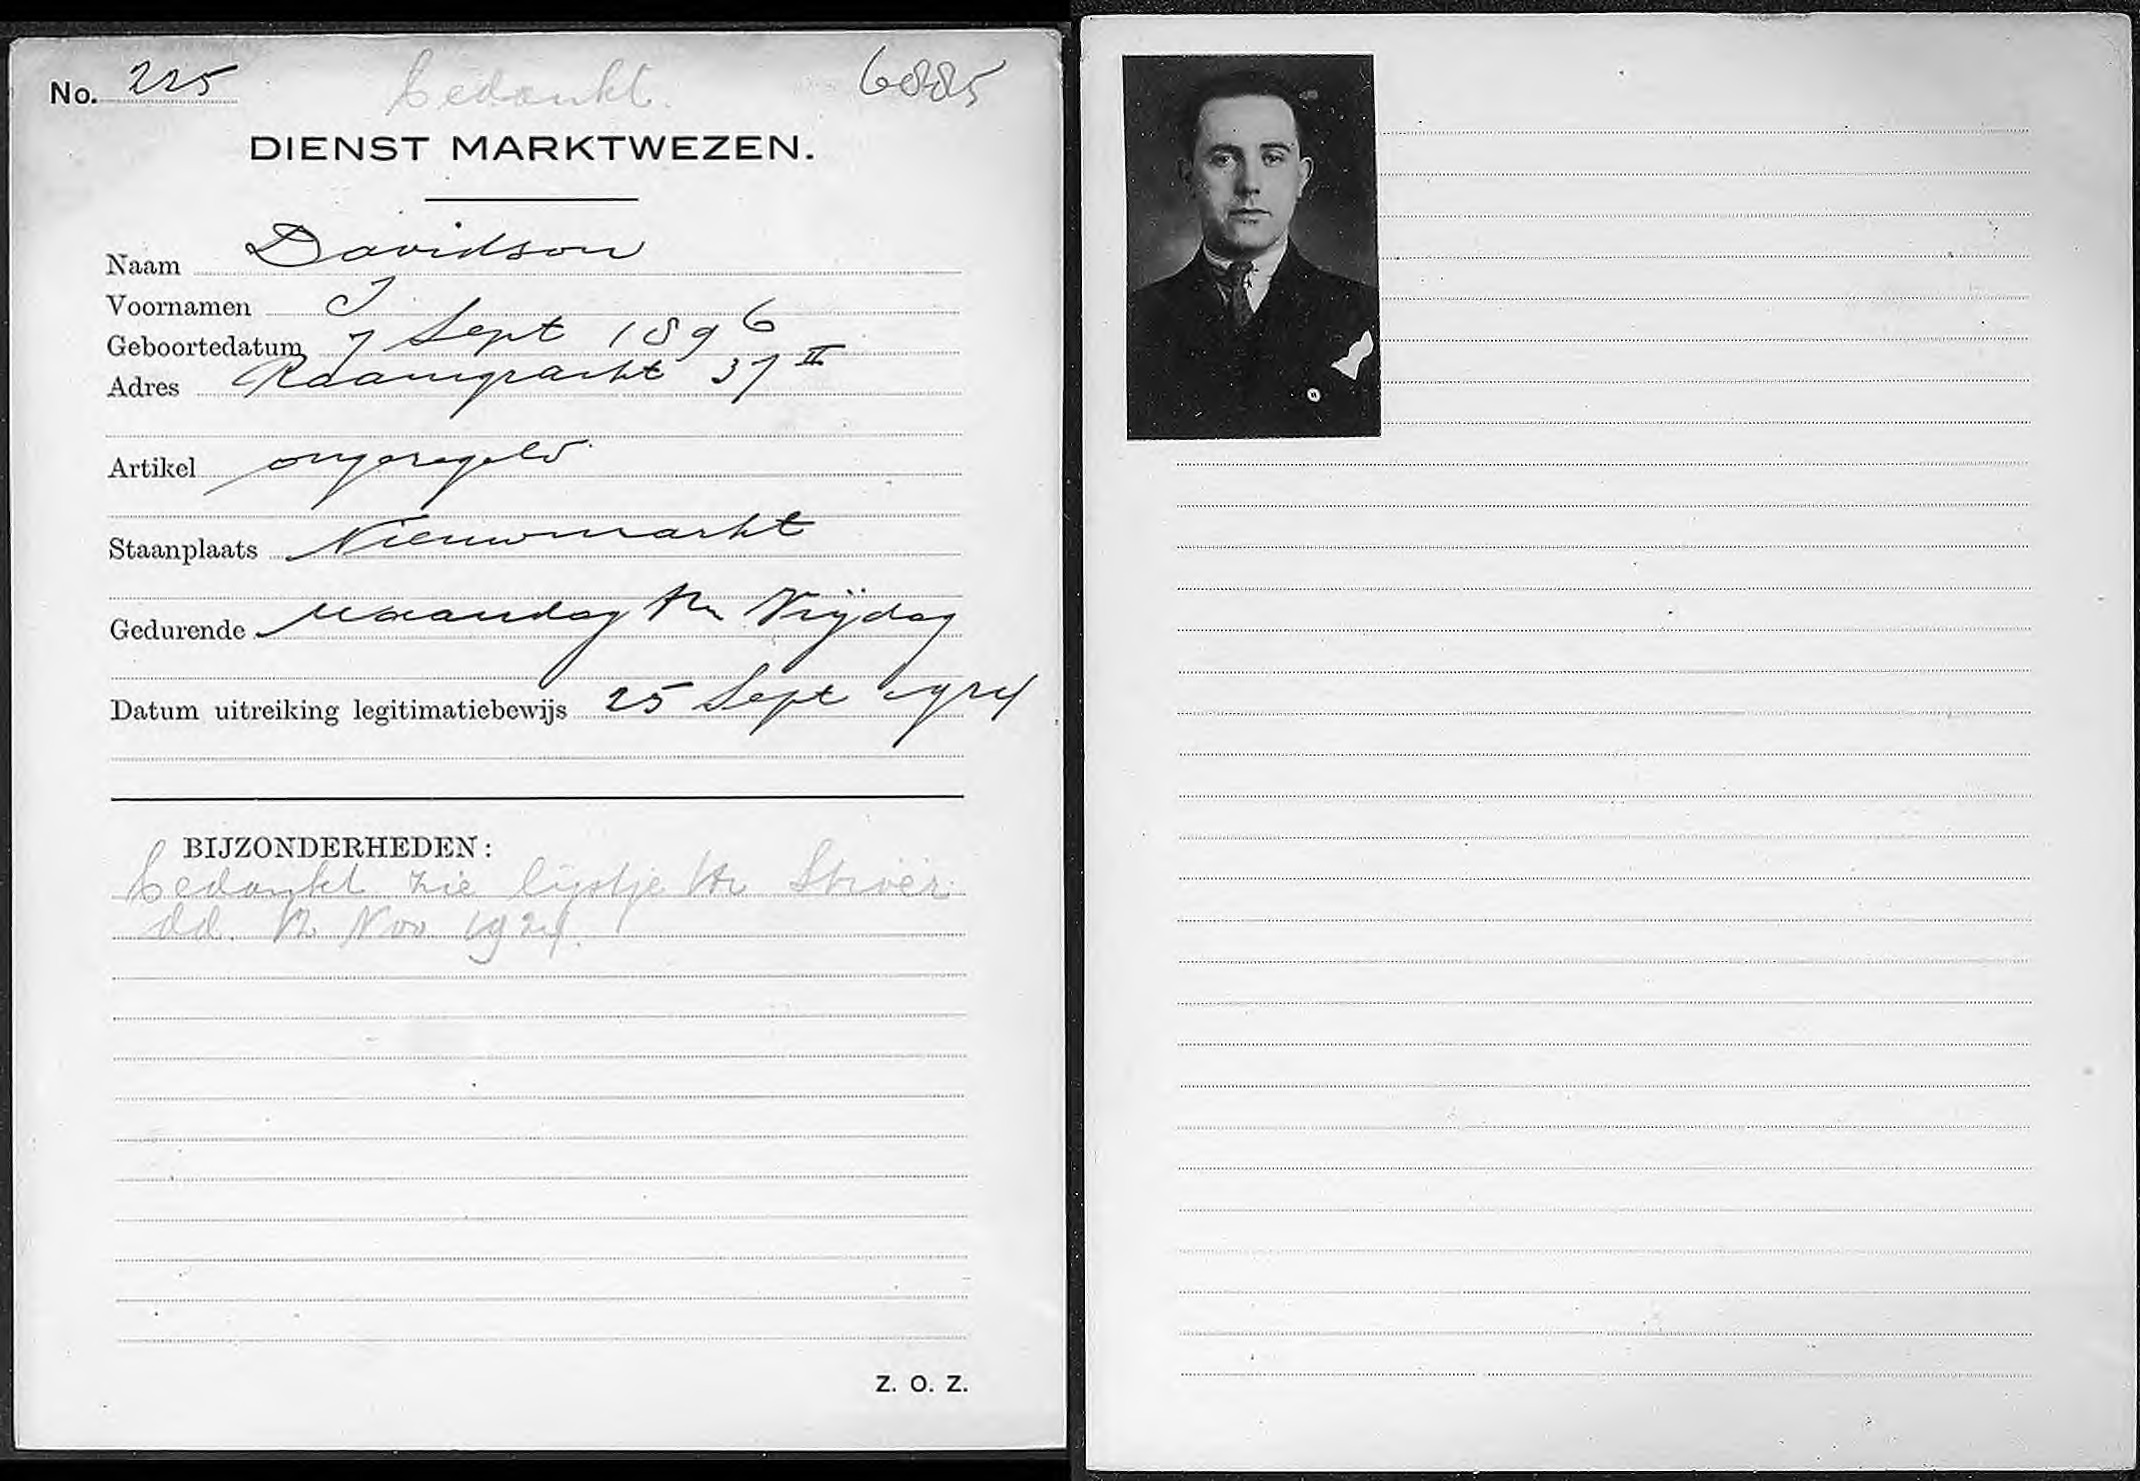 No. 225 bedankt. 6885
DIENST MARKTWEZEN.
Naam Davidson
Voornamen J
Geboortedatum 7 Sept 1896
Adres Raamgracht 37 II
Artikel ongeregeld
Staanplaats Nieuwmarkt
Gedurende Maandag t/m Vrijdag
Datum uitreiking legitimatiebewijs 25 Sept 1924
BIJZONDERHEDEN:
bedankt zie lijstje
dd. 12 Nov 1924.
Z. O. Z.